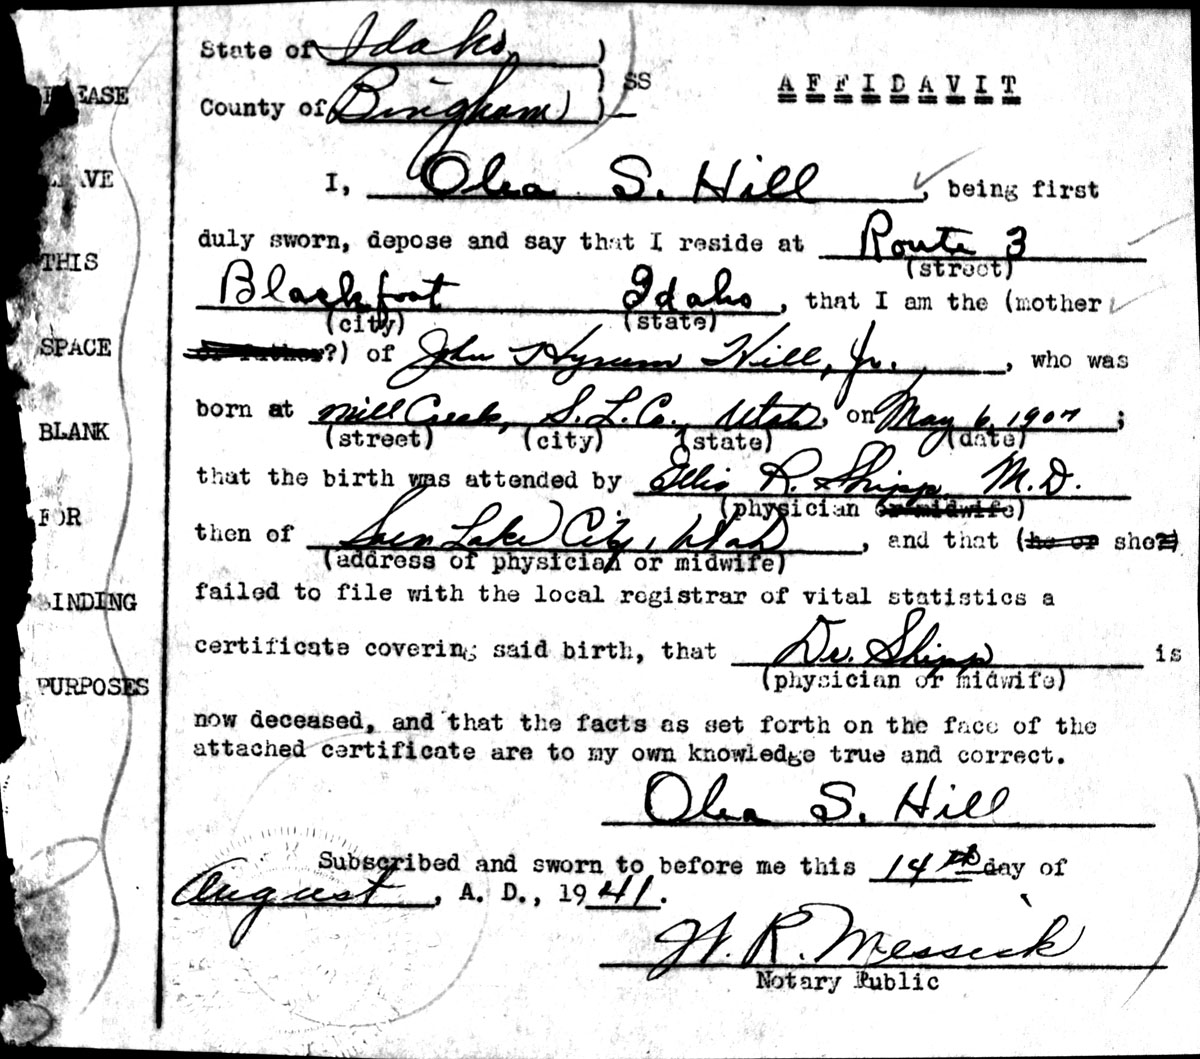 State of Idaho )
) SS
County of Bingham ) —
AFFIDAVIT
I, Olea S. Hill, being first
duly sworn, depose and say that I reside at Route 3
(street)
Blackfoot Idaho, that I am the (mother
(city) (state)
or father?) of John Hyrum Hill, Jr., who was
born at Mill Creek, S. L. Co., Utah, on May 6, 1907;
(street) (city) (state) (date)
that the birth was attended by Ellis R. Shipp M.D.
(physician or midwife)
then of Lake City, Utah, and that (he or she?)
(address of physician or midwife)
failed to file with the local registrar of vital statistics a
certificate covering said birth, that Dr. Shipp is
(physician or midwife)
now deceased, and that the facts as set forth on the face of the
attached certificate are to my own knowledge true and correct.
Olea S. Hill
Subscribed and sworn to before me this 14th day of
August, A. D., 1941.
W. R. Messick
Notary Public
PLEASE
LEAVE
THIS
SPACE
BLANK
FOR
BINDING
PURPOSES